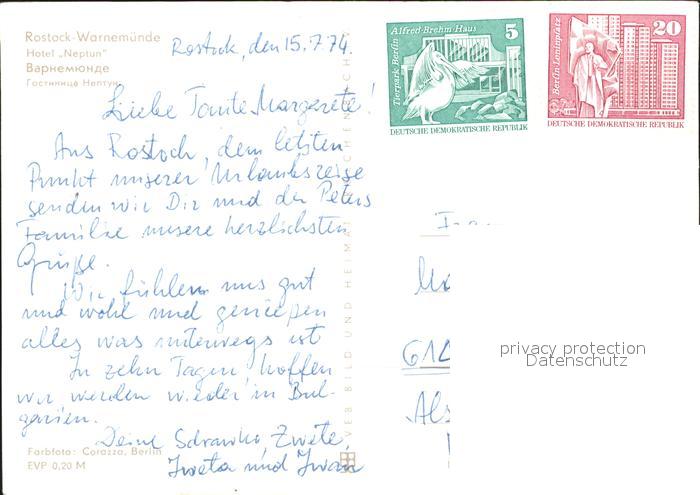 Rostock-Warnemünde
Hotel „Neptun"
Варнемюнде
Гостиница Нептун
Rostock, den 15.7.74.
Liebe Tante Margarete!
Aus Rostock, dem letzten
Punkt unserer Urlaubsreise
senden wir Dir und der Peters
Familie unsere herzlichsten
Grüße.
Wir fühlen uns gut
und wohl und genießen
alles was unterwegs ist
In zehn Tagen hoffen
wir werden wieder in Bul-
garien.
Deine Sdrawko Zwete,
Iweta und Iwan
Farbfoto: Corazza, Berlin
EVP 0,20 M
VEB BILD UND HEIMAT
Alfred-Brehm-Haus
5
Tierpark Berlin
DEUTSCHE DEMOKRATISCHE REPUBLIK
20
Berlin-Leninplatz
DEUTSCHE DEMOKRATISCHE REPUBLIK
privacy protection
Datenschutz